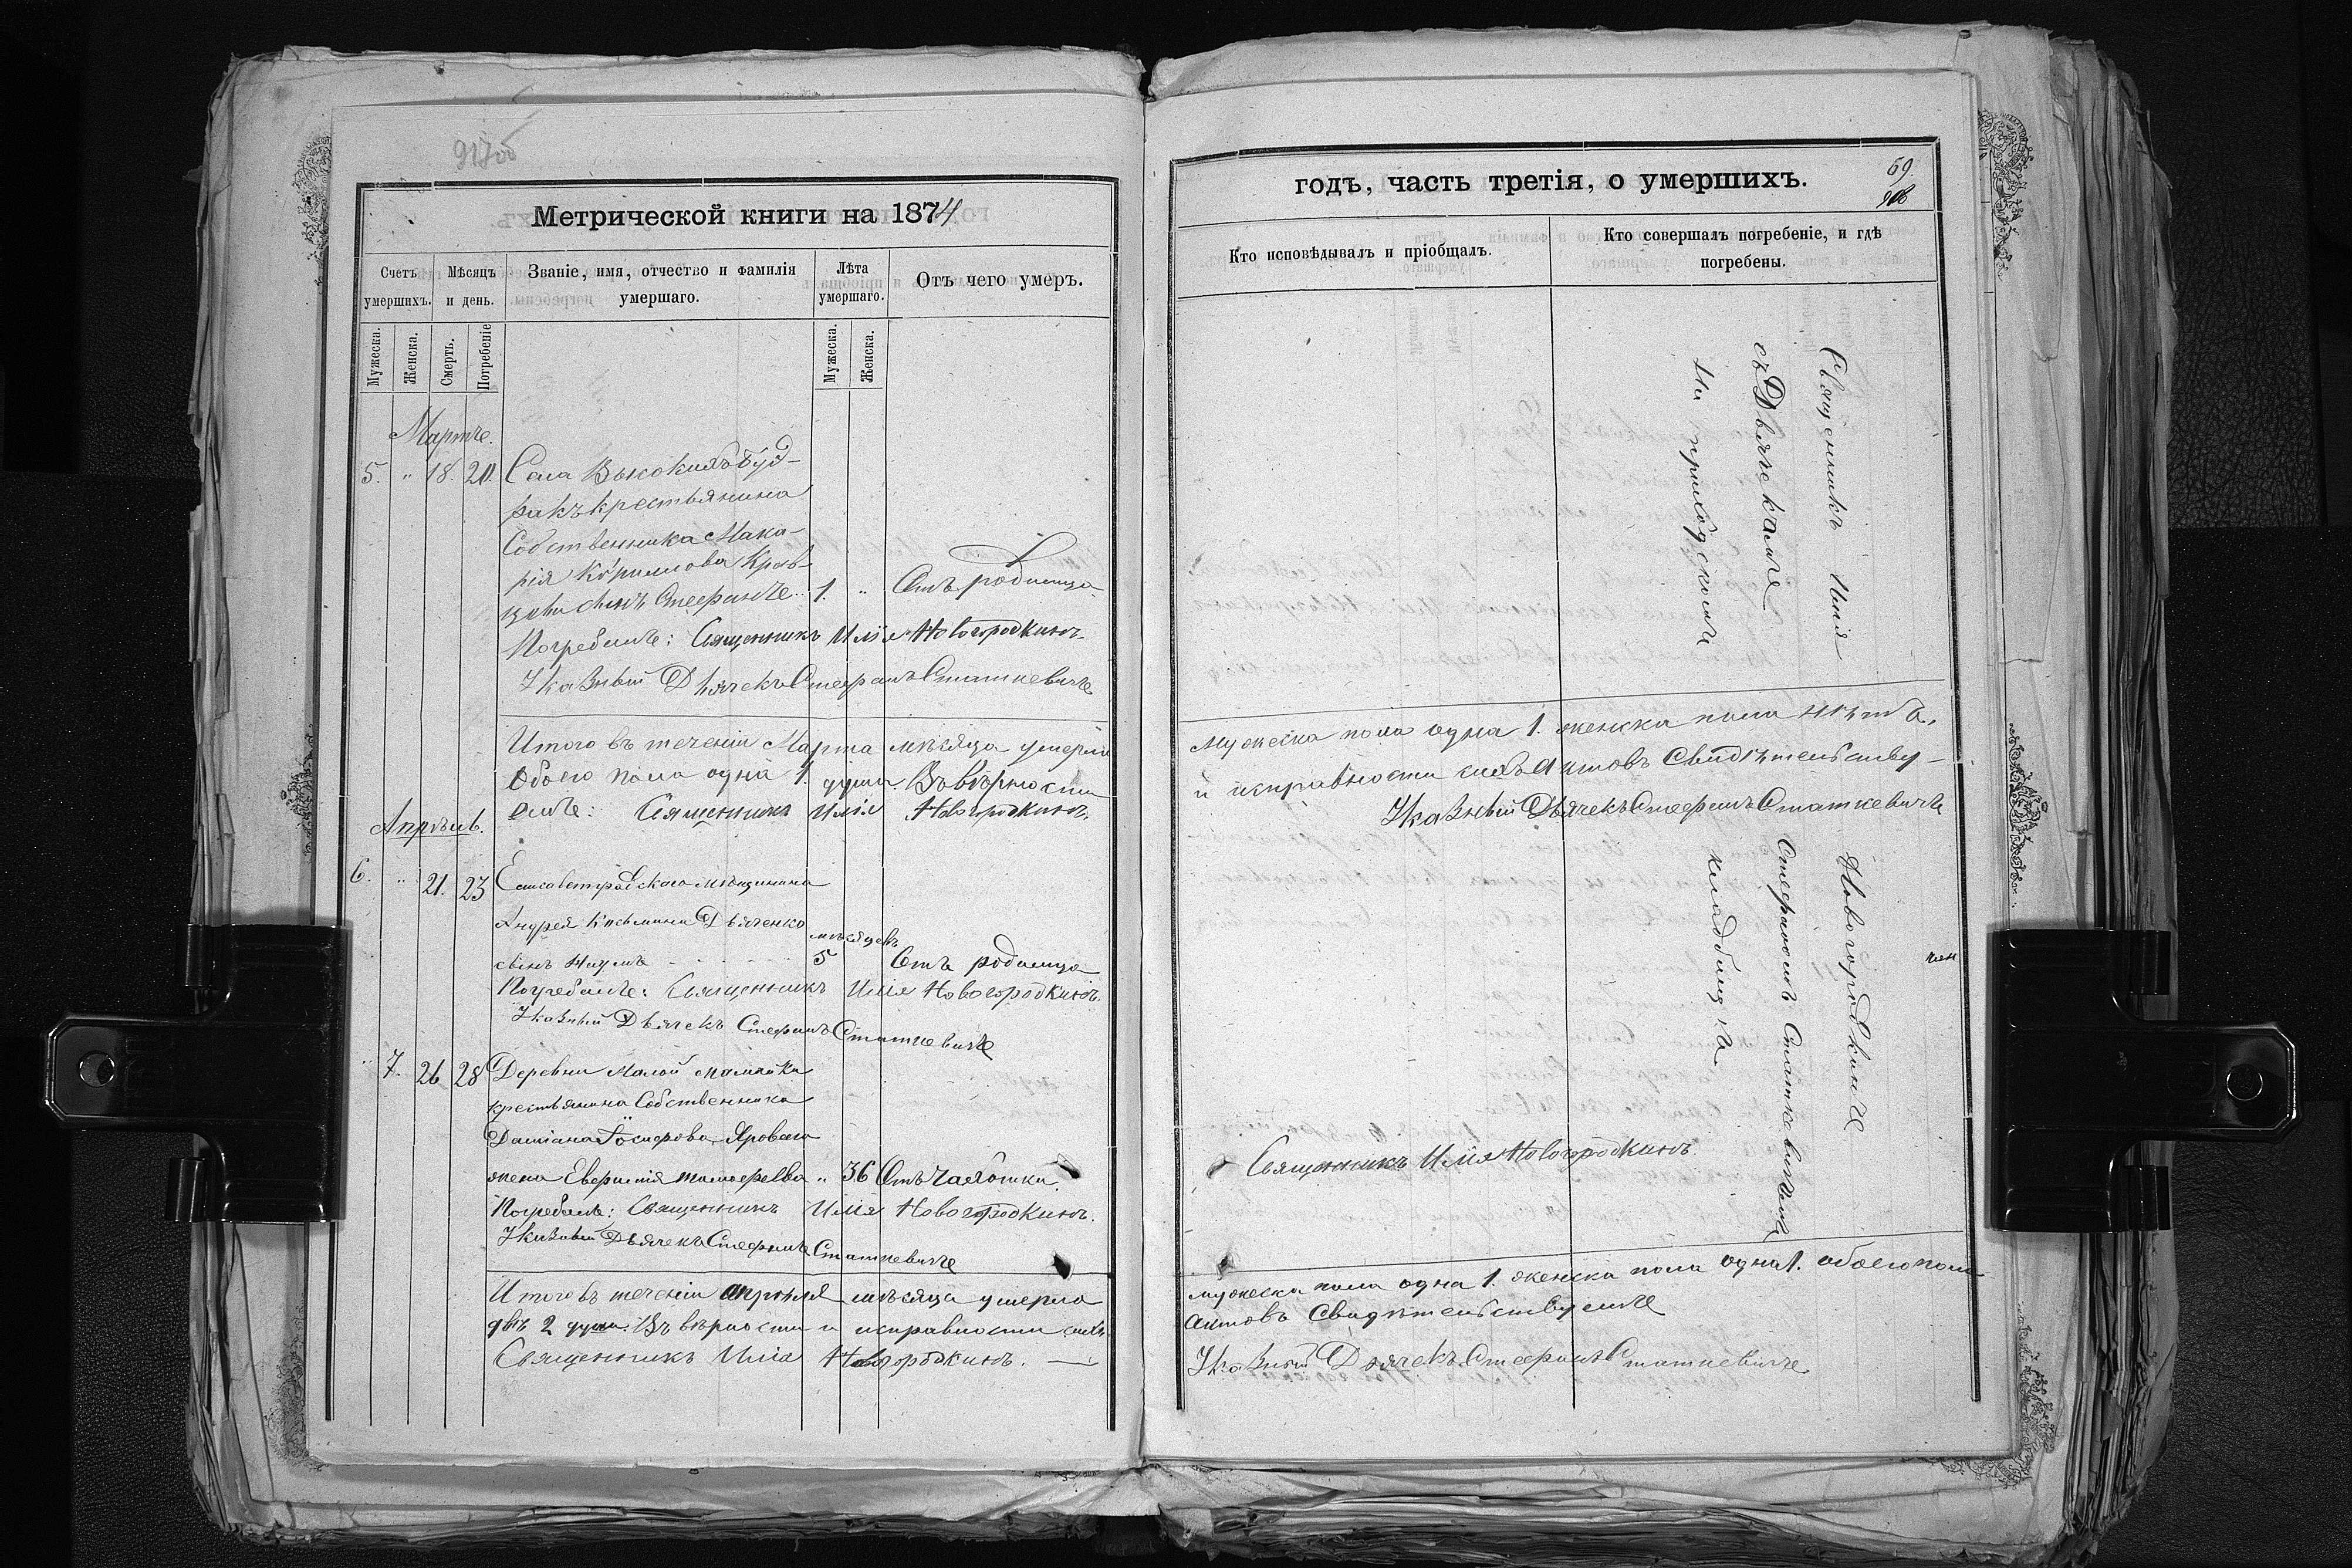 917об
Метрической книги на 1874
Счетъ умершихъ.
Мѣсяцъ и день.
Званіе, имя, отчество и фамилія умершаго.
Лѣта умершаго.
Отъ чего умеръ.
Мужеска.
Женска.
Смерть.
Погребеніе
Мужеска.
Женска.
Мартъ.
5. " 18. 20. Села Высокихъ Буд-
ракъ крестьянина
Собственника Мака-
рія Кѵриллова Крав-
цова сынъ Стефанъ 1. " Отъ родимца
Погребалъ: Священникъ Илія Новогородкинъ.
Указный Дьячекъ Стефанъ Статкевичъ
Итого въ теченіи Марта мѣсяца умерло
обоего пола одна 1. душа. Въ вѣрности
емъ: Священникъ Илія Новогродкинъ.
Апрѣль.
6. " 21. 23 Елисаветградскаго мѣщанина
Андрея Косьмина Дьяченко
мѣсяцевъ
сынъ Наумъ 5 Отъ родимца
Погребалъ: Священникъ Илія Новогородкинъ.
Указный Дьячекъ Стефанъ Статкевичъ
" 7. 26 28 Деревни Малой Мамайки
крестьянина Собственника
Даміана Яроваго
жена Евфимія " 36 Отъ Чахотки.
Погребалъ: Священникъ Илія Новогородкинъ.
Указный Дьячекъ Стефанъ Статкевичъ
Итого въ теченіи апрѣля мѣсяца умерло
двѣ 2 души. Въ вѣрности и исправности сихъ
Священникъ Илія Новогородкинъ.
годъ, часть третія, о умершихъ.
69.
918
Кто исповѣдывалъ и пріобщалъ.
Кто совершалъ погребеніе, и гдѣ погребены.
Священникъ Илія
съ Дьячекамъ
На приходскомъ
мужеска пола одна 1. женска пола нѣтъ,
и исправности сихъ актовъ Свидѣтельству-
Указный Дьячекъ Стефанъ Статкевичъ
Новогородкинъ
Стефаномъ Статкевичемъ
кладбищѣ
Священникъ Илія Новогородкинъ.
мужеска пола одна 1. женска пола одна 1. обоего пола
актовъ Свидѣтельствуемъ
Указный Дьячекъ Стефанъ Статкевичъ